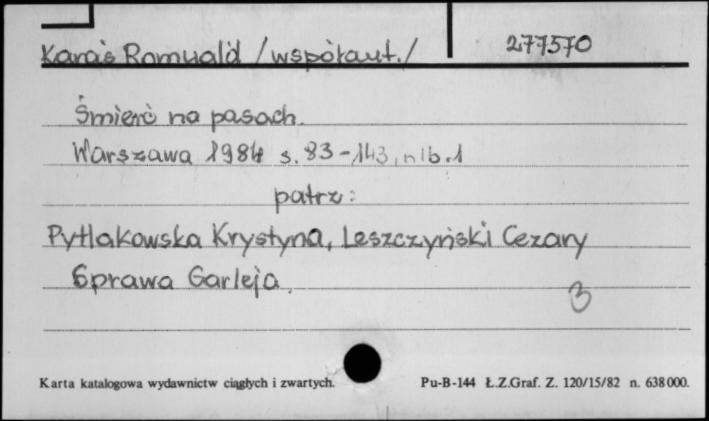 Karaś Romuald /współaut./ 277570
Śmierć na pasach.
Warszawa 1984 s. 83-143, nlb. 1
patrz:
Pytlakowska Krystyna, Leszczyński Cezary
Sprawa Garleja.
3
Karta katalogowa wydawnictw ciągłych i zwartych. Pu-B-144 Ł.Z.Graf. Z. 120/15/82 n. 638000.